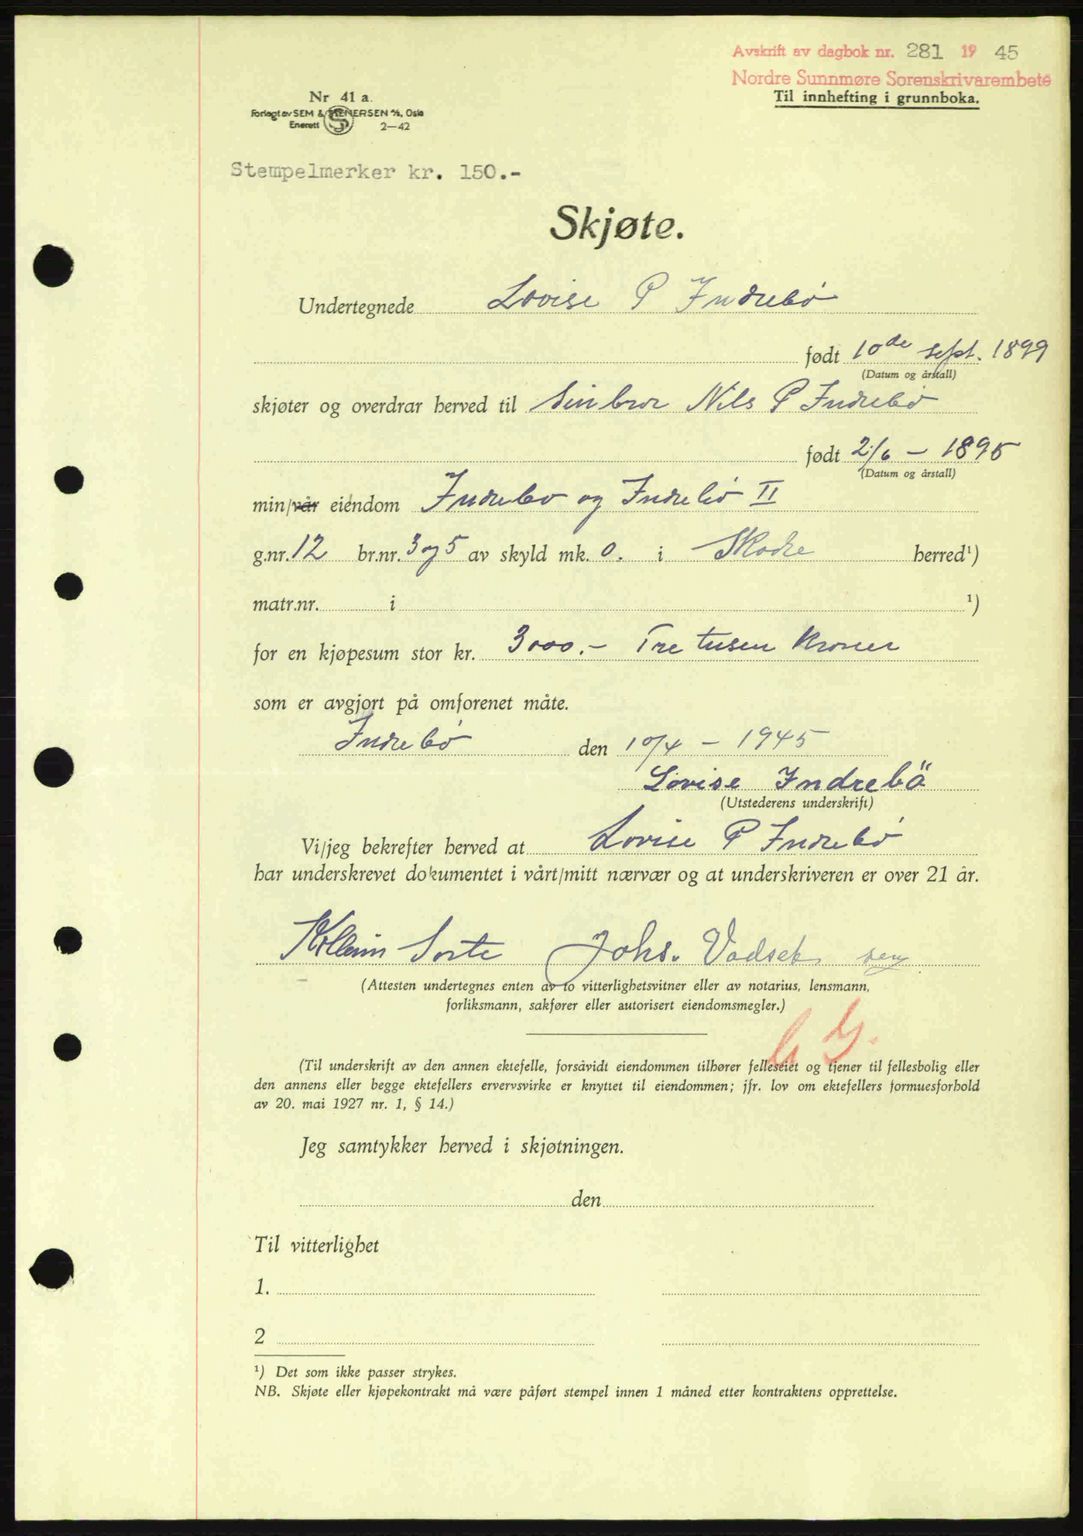 Avskrift av dagbok nr. 281 19 45
Nordre Sunnmøre Sorenskrivarembete
Til innhefting i grunnboka.
Nr 41 a.
Forlagt av SEM & STENERSEN A/S, Oslo
Enerett 2—42
Stempelmerker kr. 150.-
Skjøte.
Undertegnede Lovise P Indrebø
født 10de sept. 1899
(Datum og årstall)
skjøter og overdrar herved til Sin bror Nils P Indrebø
født 2/6 – 1895
(Datum og årstall)
min/vår eiendom Indrebø og Indrebø II
g.nr. 12 br.nr. 3 og 5 av skyld mk. 0. i Skodje herred¹)
matr.nr. i ¹)
for en kjøpesum stor kr. 3000.- Tre tusen kroner
som er avgjort på omforenet måte.
Indrebø den 10/4 – 1945
Lovise Indrebö
(Utstederens underskrift)
Vi/jeg bekrefter herved at Lovise P Indrebø
har underskrevet dokumentet i vårt/mitt nærvær og at underskriveren er over 21 år.
Sorte Johs. Vadset sen
(Attesten undertegnes enten av to vitterlighetsvitner eller av notarius, lensmann,
forliksmann, sakfører eller autorisert eiendomsmegler.)
(Til underskrift av den annen ektefelle, forsåvidt eiendommen tilhører felleseiet og tjener til fellesbolig eller
den annens eller begge ektefellers ervervsvirke er knyttet til eiendommen; jfr. lov om ektefellers formuesforhold
av 20. mai 1927 nr. 1, § 14.)
Jeg samtykker herved i skjøtningen.
den
Til vitterlighet
1.
2
¹) Det som ikke passer strykes.
NB. Skjøte eller kjøpekontrakt må være påført stempel innen 1 måned etter kontraktens opprettelse.